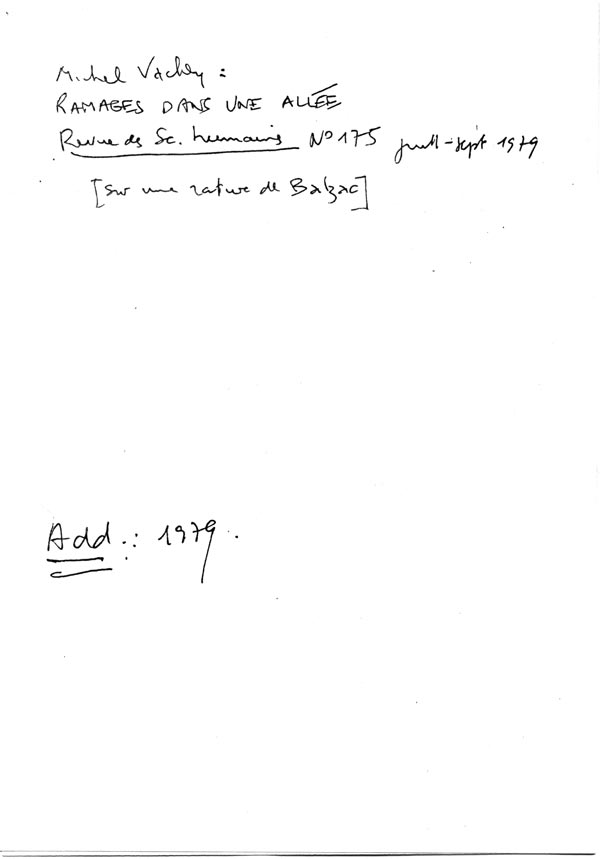 Michel Vachey :
RAMAGES DANS UNE ALLÉE
Revue des Sc. humaines N° 175 juill-sept 1979
[Sur une rature de Balzac]
Add.: 1979.